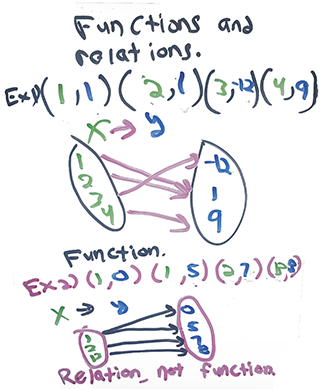 Functions and
relations.
Ex1) (1,1) (2,1) (3,-12) (4,9)
x → y
1
2
3
4
-12
1
9
Function.
Ex2) (1,0) (1,5) (2,7) (12,8)
x → y
1
2
12
0
5
7
8
Relation, not function.